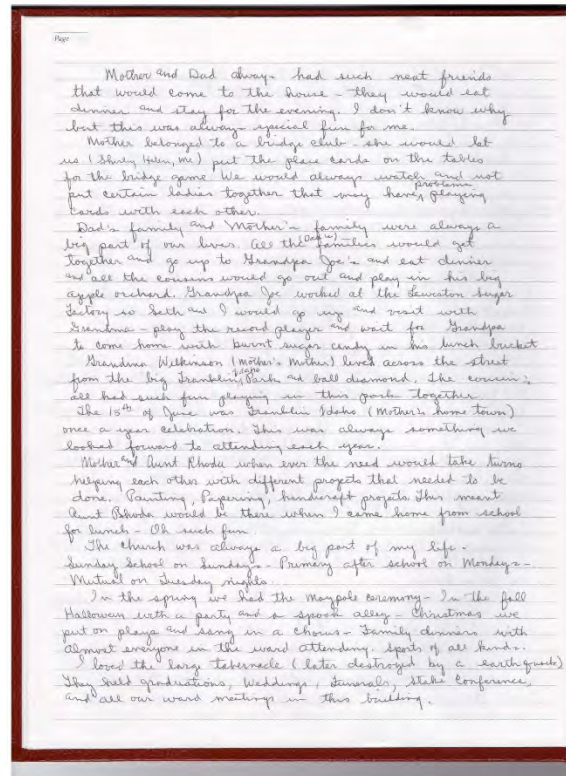 Page
Mother and Dad always had such neat friends
that would come to the house - they would eat
dinner and stay for the evening. I don't know why
but this was always special fun for me.
Mother belonged to a bridge club - she would let
us (Shirley, Helen, me) put the place cards on the tables
for the bridge game. We would always watch and not
put certain ladies together that may have problems playing
cards with each other.
Dad's family and Mother's family were always a
big part of our lives. All the (Dad's) families would get
together and go up to Grandpa Joe's and eat dinner
and all the cousins would go out and play in his big
apple orchard. Grandpa Joe worked at the Lewiston Sugar
Factory so Seth and I would go up and visit with
Grandma - play the record player and wait for Grandpa
to come home with burnt sugar candy in his lunch bucket
Grandma Wilkinson (Mother's Mother) lived across the street
from the big Franklin, Idaho Park and ball diamond. The cousins
all had such fun playing in this park together.
The 15th of June was Franklin Idaho (Mother's home town)
once a year celebration. This was always something we
looked forward to attending each year.
Mother and Aunt Rhoda when ever the need would take turns
helping each other with different projets that needed to be
done. Painting, Papering, handicraft projets. This meant
Aunt Rhoda would be there when I came home from school
for lunch - Oh such fun.
The church was always a big part of my life -
Sunday School on Sundays - Primary after school on Mondays -
Mutual on Tuesday nights.
In the spring we had the Maypole ceremony - In the fall
Halloween with a party and a spook alley - Christmas we
put on plays and sang in a chorus - Family dinners with
almost everyone in the ward attending. Sports of all kinds.
I loved the large tabernacle (later destroyed by a earthquake)
They held graduations, Weddings, Funerals, Stake Conference,
and all our ward meetings in this building.